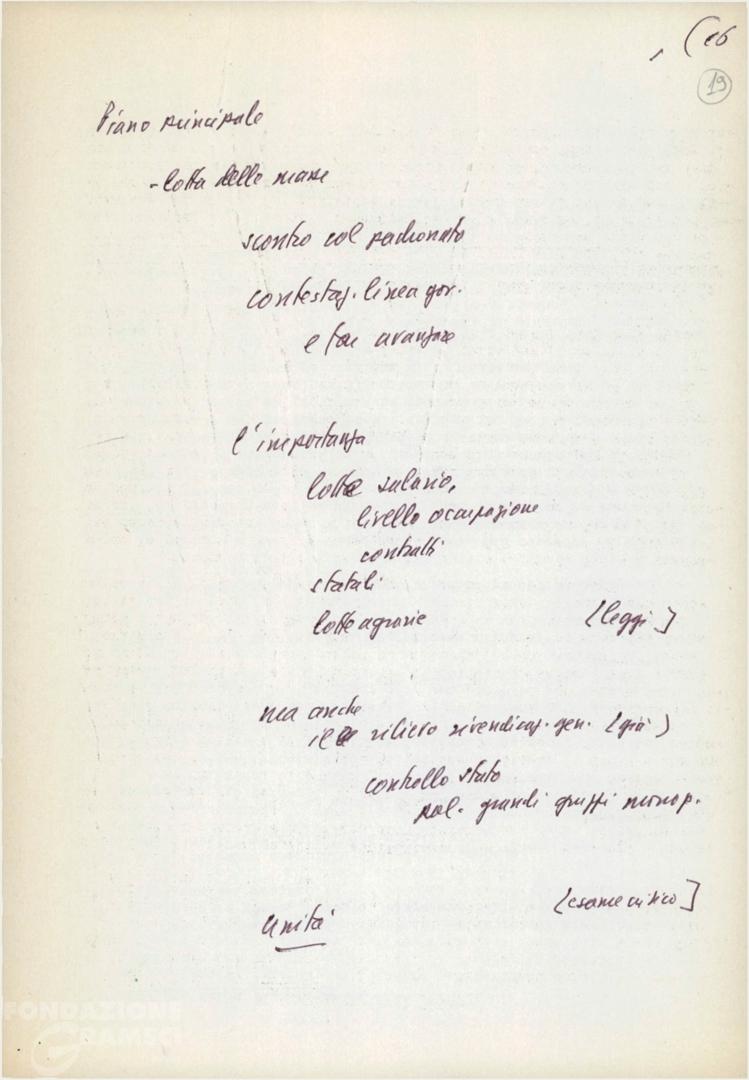 19
Piano principale
- lotta delle masse
scontro col padronato
contestaz. linea gov.
e far avanzare
l'importanza
lotte salario,
livello occupazione
contratti
statali
lotte agrarie [leggi]
ma anche
il rilievo rivendicaz. gen. (già)
controllo stato
pol. grandi gruppi monop.
[esame critico]
unità
FONDAZIONE
GRAMSCI